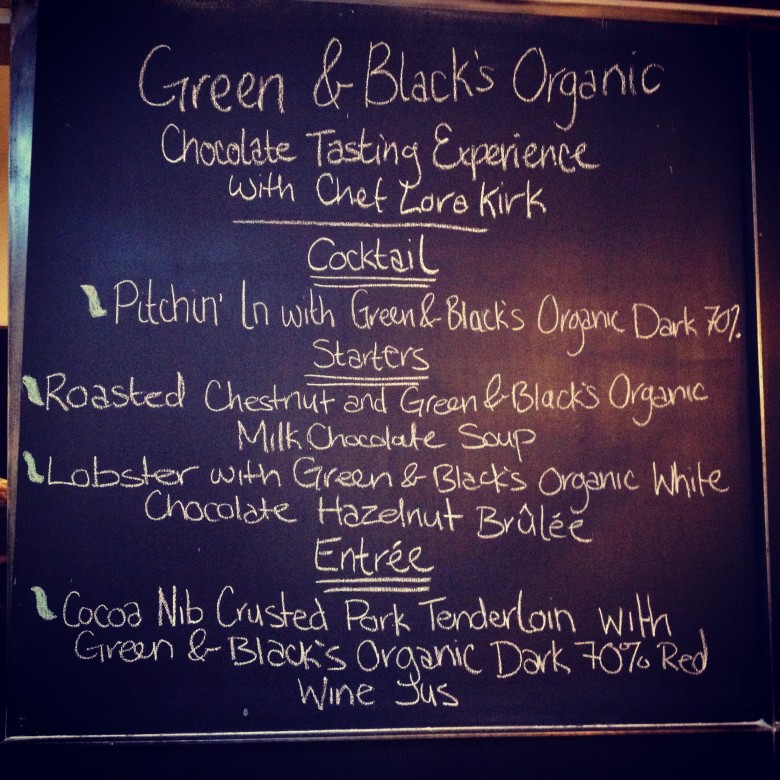 Green & Black's Organic
Chocolate Tasting Experience
with Chef Lora Kirk
Cocktail
Pitchin' In with Green & Black's Organic Dark 70%
Starters
Roasted Chestnut and Green & Black's Organic
Milk Chocolate Soup
Lobster with Green & Black's Organic White
Chocolate Hazelnut Brûlée
Entrée
Cocoa Nib Crusted Pork Tenderloin with
Green & Black's Organic Dark 70% Red
Wine Jus